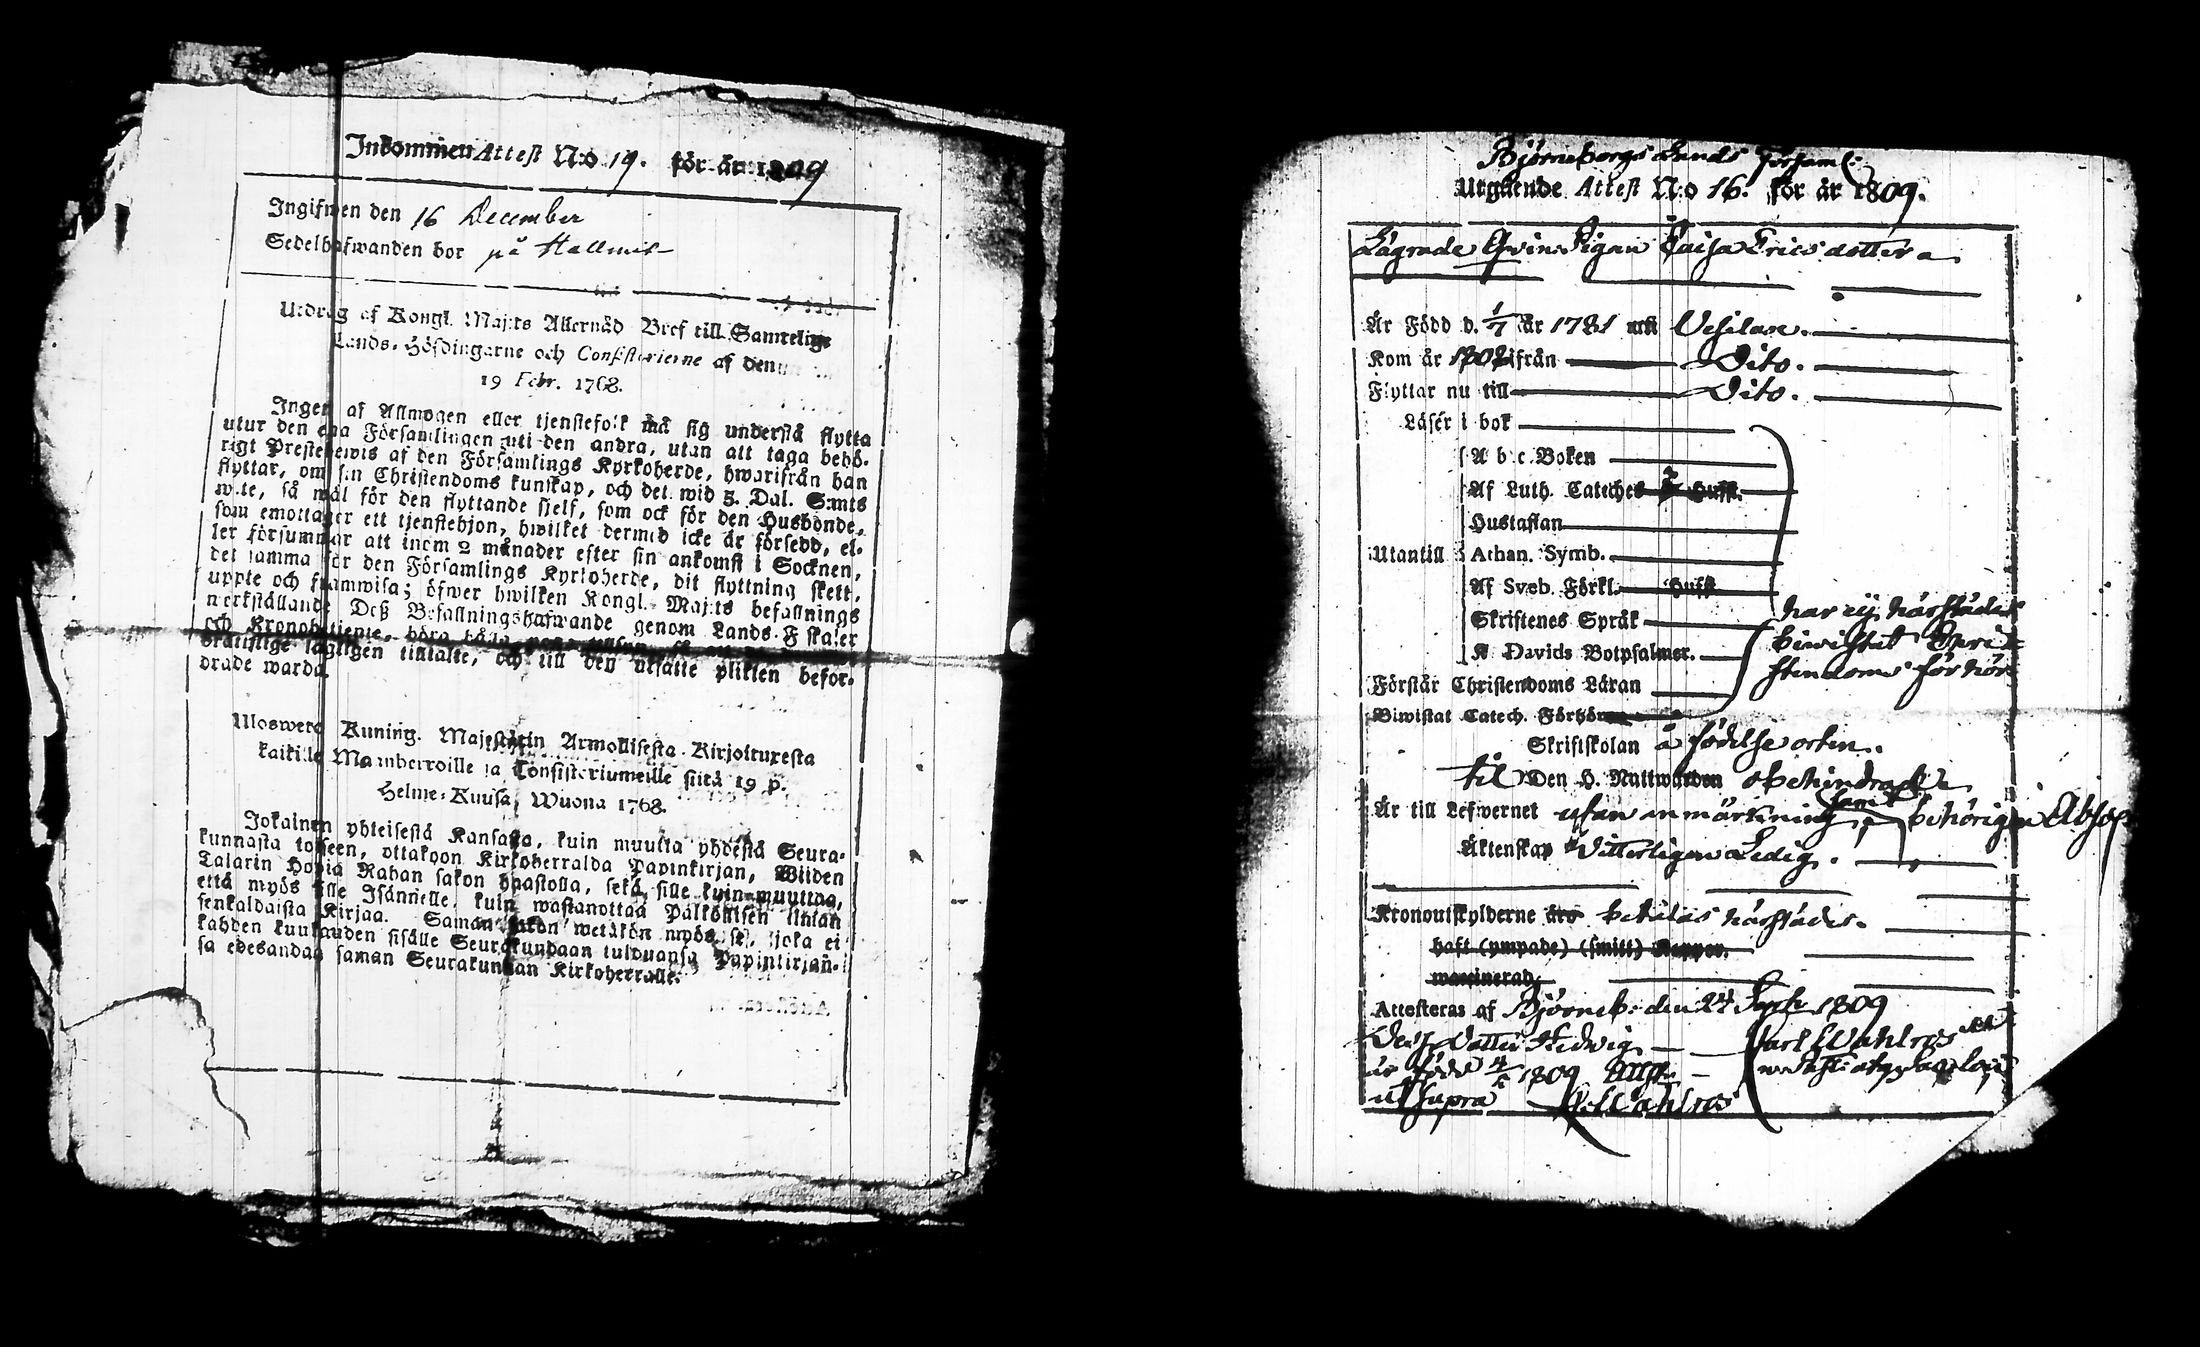 Inkommen Attest N:o 19. för år 1809
Ingifwen den 16 December
Sedelhafwanden bor på Hallmis
Utdrag af Kongl. Maj:ts Allernåd. Bref till Samtelige
Lands-Höfdingarne och Consistorierne af den
19 Febr. 1768.
Ingen af Allmogen eller tjenstefolk må sig understå flytta
utur den ena Församlingen uti den andra, utan att taga behö-
rigt Prestebewis af den Församlings Kyrkoherde, hwarifrån han
flyttar, om sin Christendoms kunskap, och det wid 5. Dal. S:mts
wite, så wäl för den flyttande sjelf, som ock för den Husbonde,
som emottager ett tjenstehjon, hwilket dermed icke är försedd, el-
ler försummar att inom 2 månader efter sin ankomst i Socknen,
det samma för den Församlings Kyrkoherde, dit flyttning skett,
uppte och framwisa; öfwer hwilken Kongl. Maj:ts befallnings
werkställande Deß Befallningshafwande genom Lands-Fiskaler
och Kronobetjente, böra hålla
brätslige lagligen tilltalte, och till den utsatte plikten befor-
drade warda.
Uloswetö Kuning. Majestätin Armollisesta Kirjoituxesta
kaikille Maanherroille ja Consistoriumeille siitä 19 p.
Helme-Kuusa, Wuona 1768.
Jokainen yhteisestä Kansasta, kuin muutta yhdestä Seura-
kunnasta toiseen, ottakoon Kirkoherralda Papinkirjan, Wiiden
Talarin Hopia Rahan sakon haastolla, sekä sille kuin muuttaa,
että myös sille Isännelle, kuin wastanottaa Palkollisen ilman
senkaldaista Kirjaa. Saman sakon wetäkön myös se, joka ei
kahden kuukauden sisälle Seurakundaan tulduansa Papinkirjan-
sa edesandaa saman Seurakunnan Kirkoherralle.
Björneborgs Lands Församl:
Utgående Attest N:o 16. för år 1809.
Lägrade Qvins Pigan Caisa Ericsdotter
Är Född d. 1/7 år 1781 uti Vesilax.
Kom år 1808 ifrån Dito.
Flyttar nu till Dito.
Läser i bok
A b c Boken
Af Luth. Cateches Hufft.
Hustaflan
Utantill Athan. Symb.
Af Sveb. Förkl. Hufft
Skriftenes Språk
K Davids Botpsalmer.
har ej härstädes
biwistat Chri-
stendoms förhör
Förstår Christendoms Läran
Biwistat Catech. Förhören
Skriftskolan å födelse orten.
til Den H. Nattwarden obehindrad
Är till Lefwernet utan anmärkning, samt behörigen Absol
Äktenskap Witterligen Ledig.
Kronoutskylderne äro betalas härstädes.
haft (ympade) (smitt) Koppor.
waccinerad
Attesteras af Björneb: den 24 Sept 1809
Carl Wahlros
Dess Dotter Hedwig
är född 1809
ut supra C. Wahlros